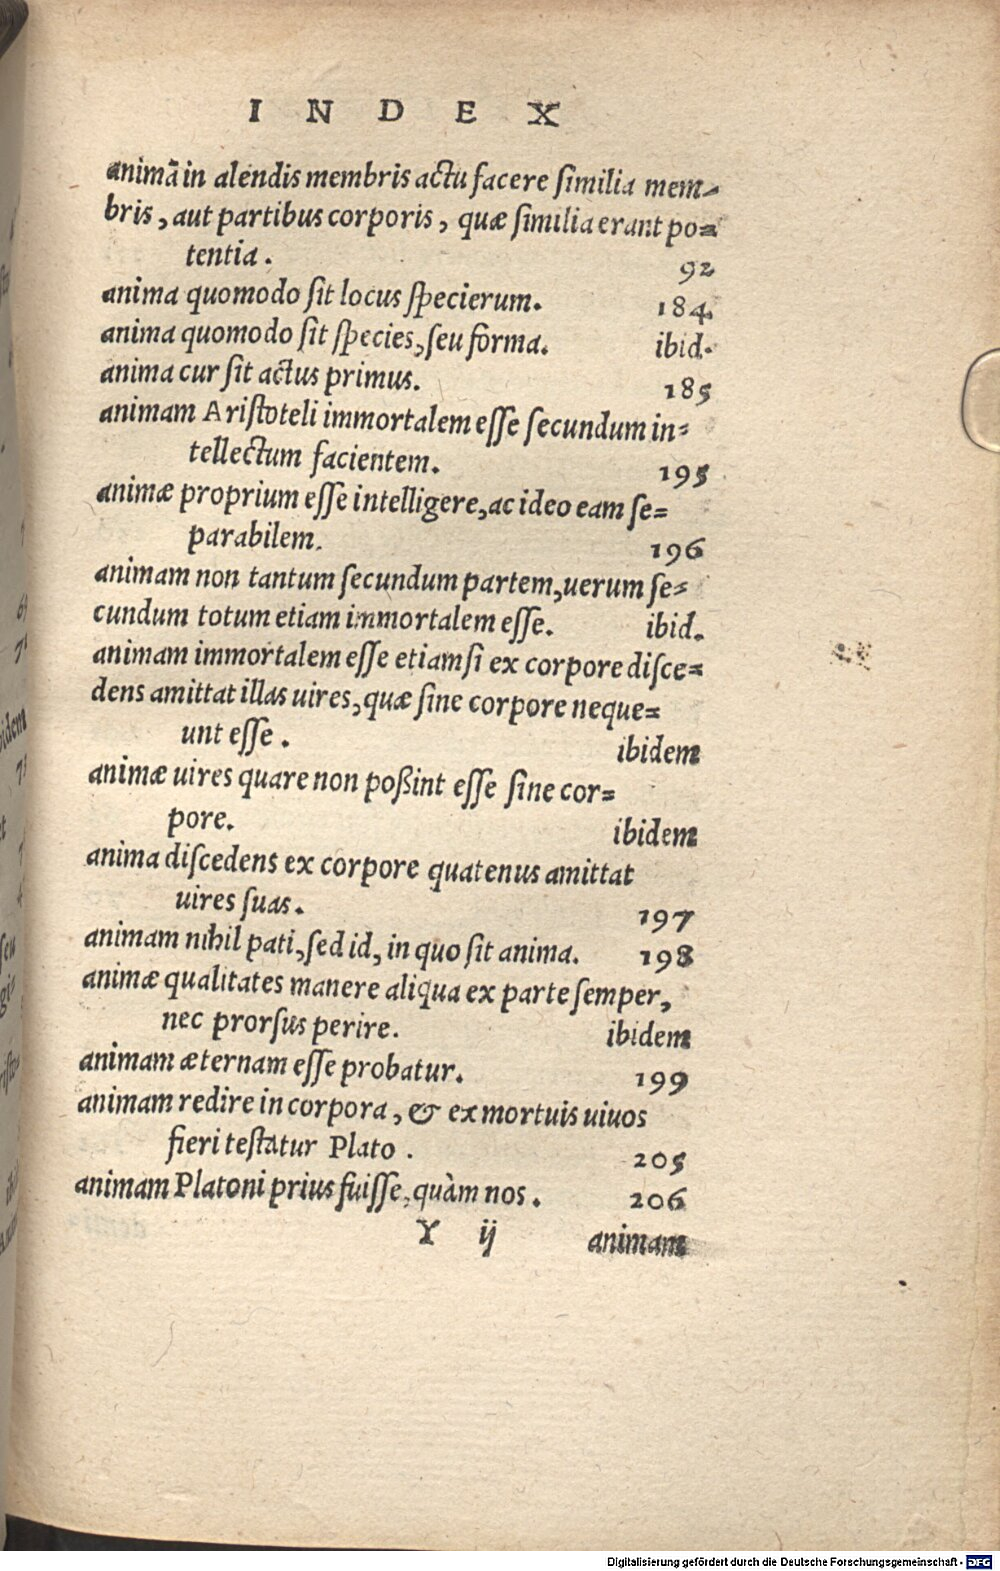 INDEX
animā in alendis membris actu facere ſimilia mem-
bris, aut partibus corporis, quæ ſimilia erant po=
tentia. 92
anima quomodo ſit locus ſpecierum. 184
anima quomodo ſit ſpecies, ſeu forma. ibid.
anima cur ſit actus primus. 185
animam Ariſtoteli immortalem eſſe ſecundum in=
tellectum facientem. 195
animæ proprium eſſe intelligere, ac ideo eam ſe=
parabilem. 196
animam non tantum ſecundum partem, uerum ſe=
cundum totum etiam immortalem eſſe. ibid.
animam immortalem eſſe etiamſi ex corpore diſce=
dens amittat illas uires, quæ ſine corpore neque=
unt eſſe. ibidem
animæ uires quare non poßint eſſe ſine cor=
pore. ibidem
anima diſcedens ex corpore quatenus amittat
uires ſuas. 197
animam nihil pati, ſed id, in quo ſit anima. 198
animæ qualitates manere aliqua ex parte ſemper,
nec prorſus perire. ibidem
animam æternam eſſe probatur. 199
animam redire in corpora, & ex mortuis uiuos
fieri teſtatur Plato. 205
animam Platoni prius fuiſſe, quàm nos. 206
Y ij animam
Digitalisierung gefördert durch die Deutsche Forschungsgemeinschaft - DFG